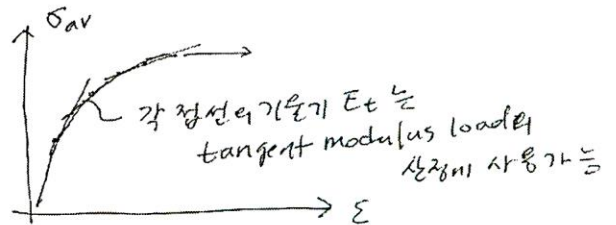 σav
각 접선의 기울기 Et 는
tangent modulus load의
산정에 사용가능
ε